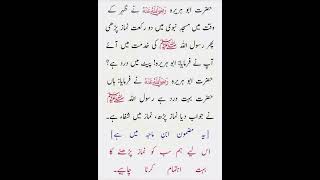 حضرت ابو ہریرہ رضی اللہ عنہ نے ظہر کے
وقت میں مسجد نبوی میں دو رکعت نماز پڑھی
پھر رسول اللہ ﷺ کی خدمت میں آئے
آپ نے فرمایا: ابو ہریرہ! پیٹ میں درد ہے؟
ابو ہریرہ رضی اللہ عنہ نے فرمایا: ہاں
حضرت بہت درد ہے رسول اللہ ﷺ
نے جواب دیا نماز پڑھ، نماز میں شفاء ہے۔
[یہ مضمون ابن ماجہ میں ہے]
اس لیے ہم سب کو نماز پڑھنے کا
بہت اہتمام کرنا چاہیے۔